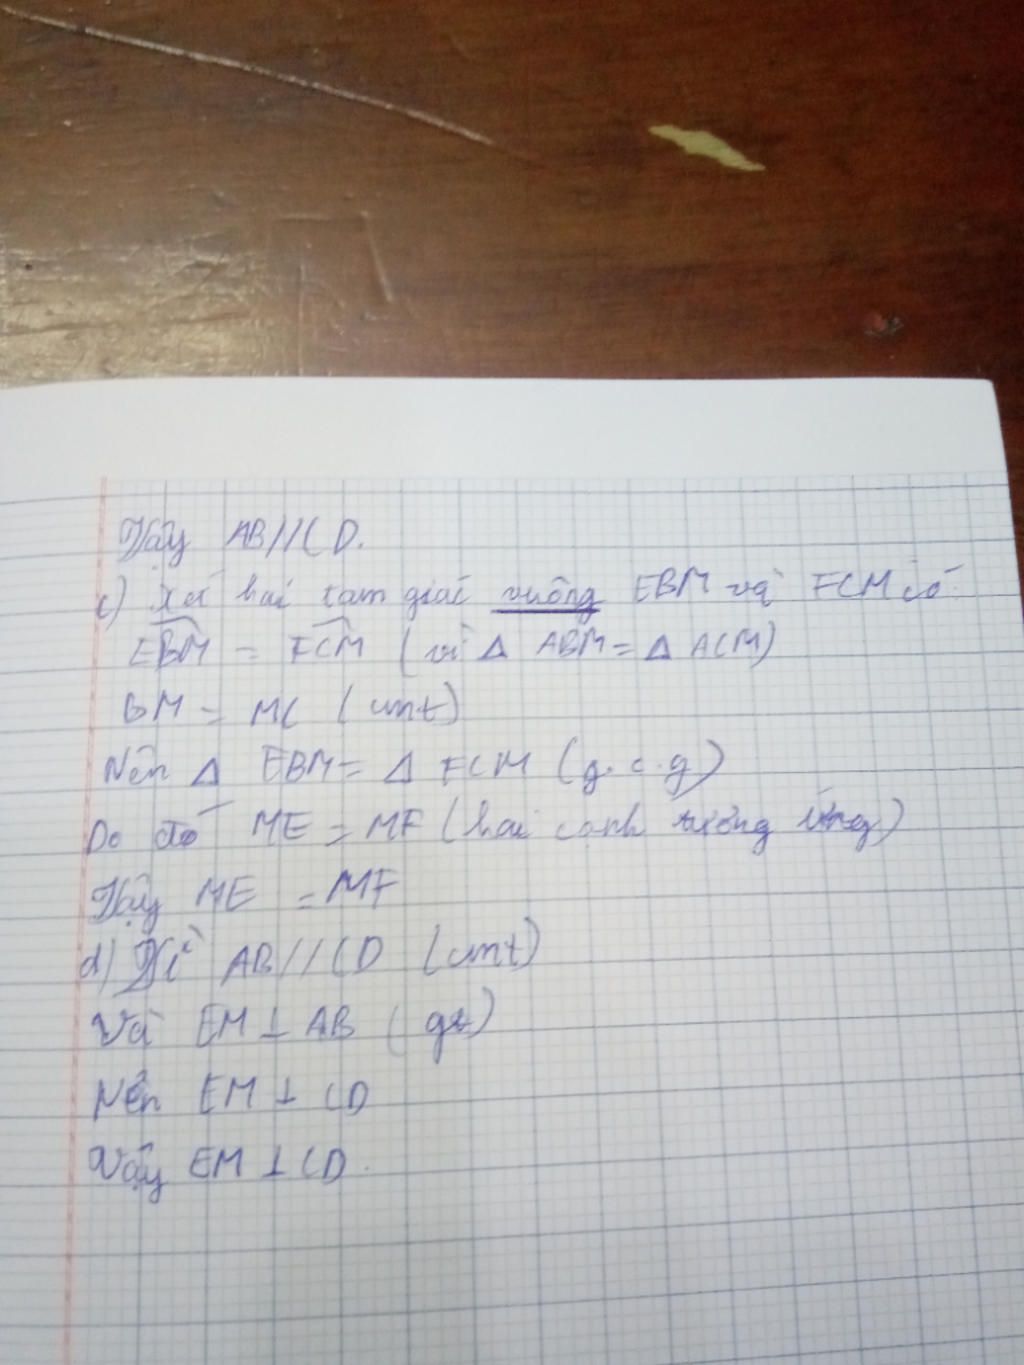 Vậy AB//CD.
c) Xét hai tam giác vuông EBM và FCM có
EBM = FCM (vì Δ ABM = Δ ACM)
BM = MC (cmt)
Nên Δ EBM = Δ FCM (g.c.g)
Do đó ME = MF (hai cạnh tương ứng)
Vậy ME = MF
d) Vì AB//CD (cmt)
Và EM ⊥ AB (gt)
Nên EM ⊥ CD
Vậy EM ⊥ CD.